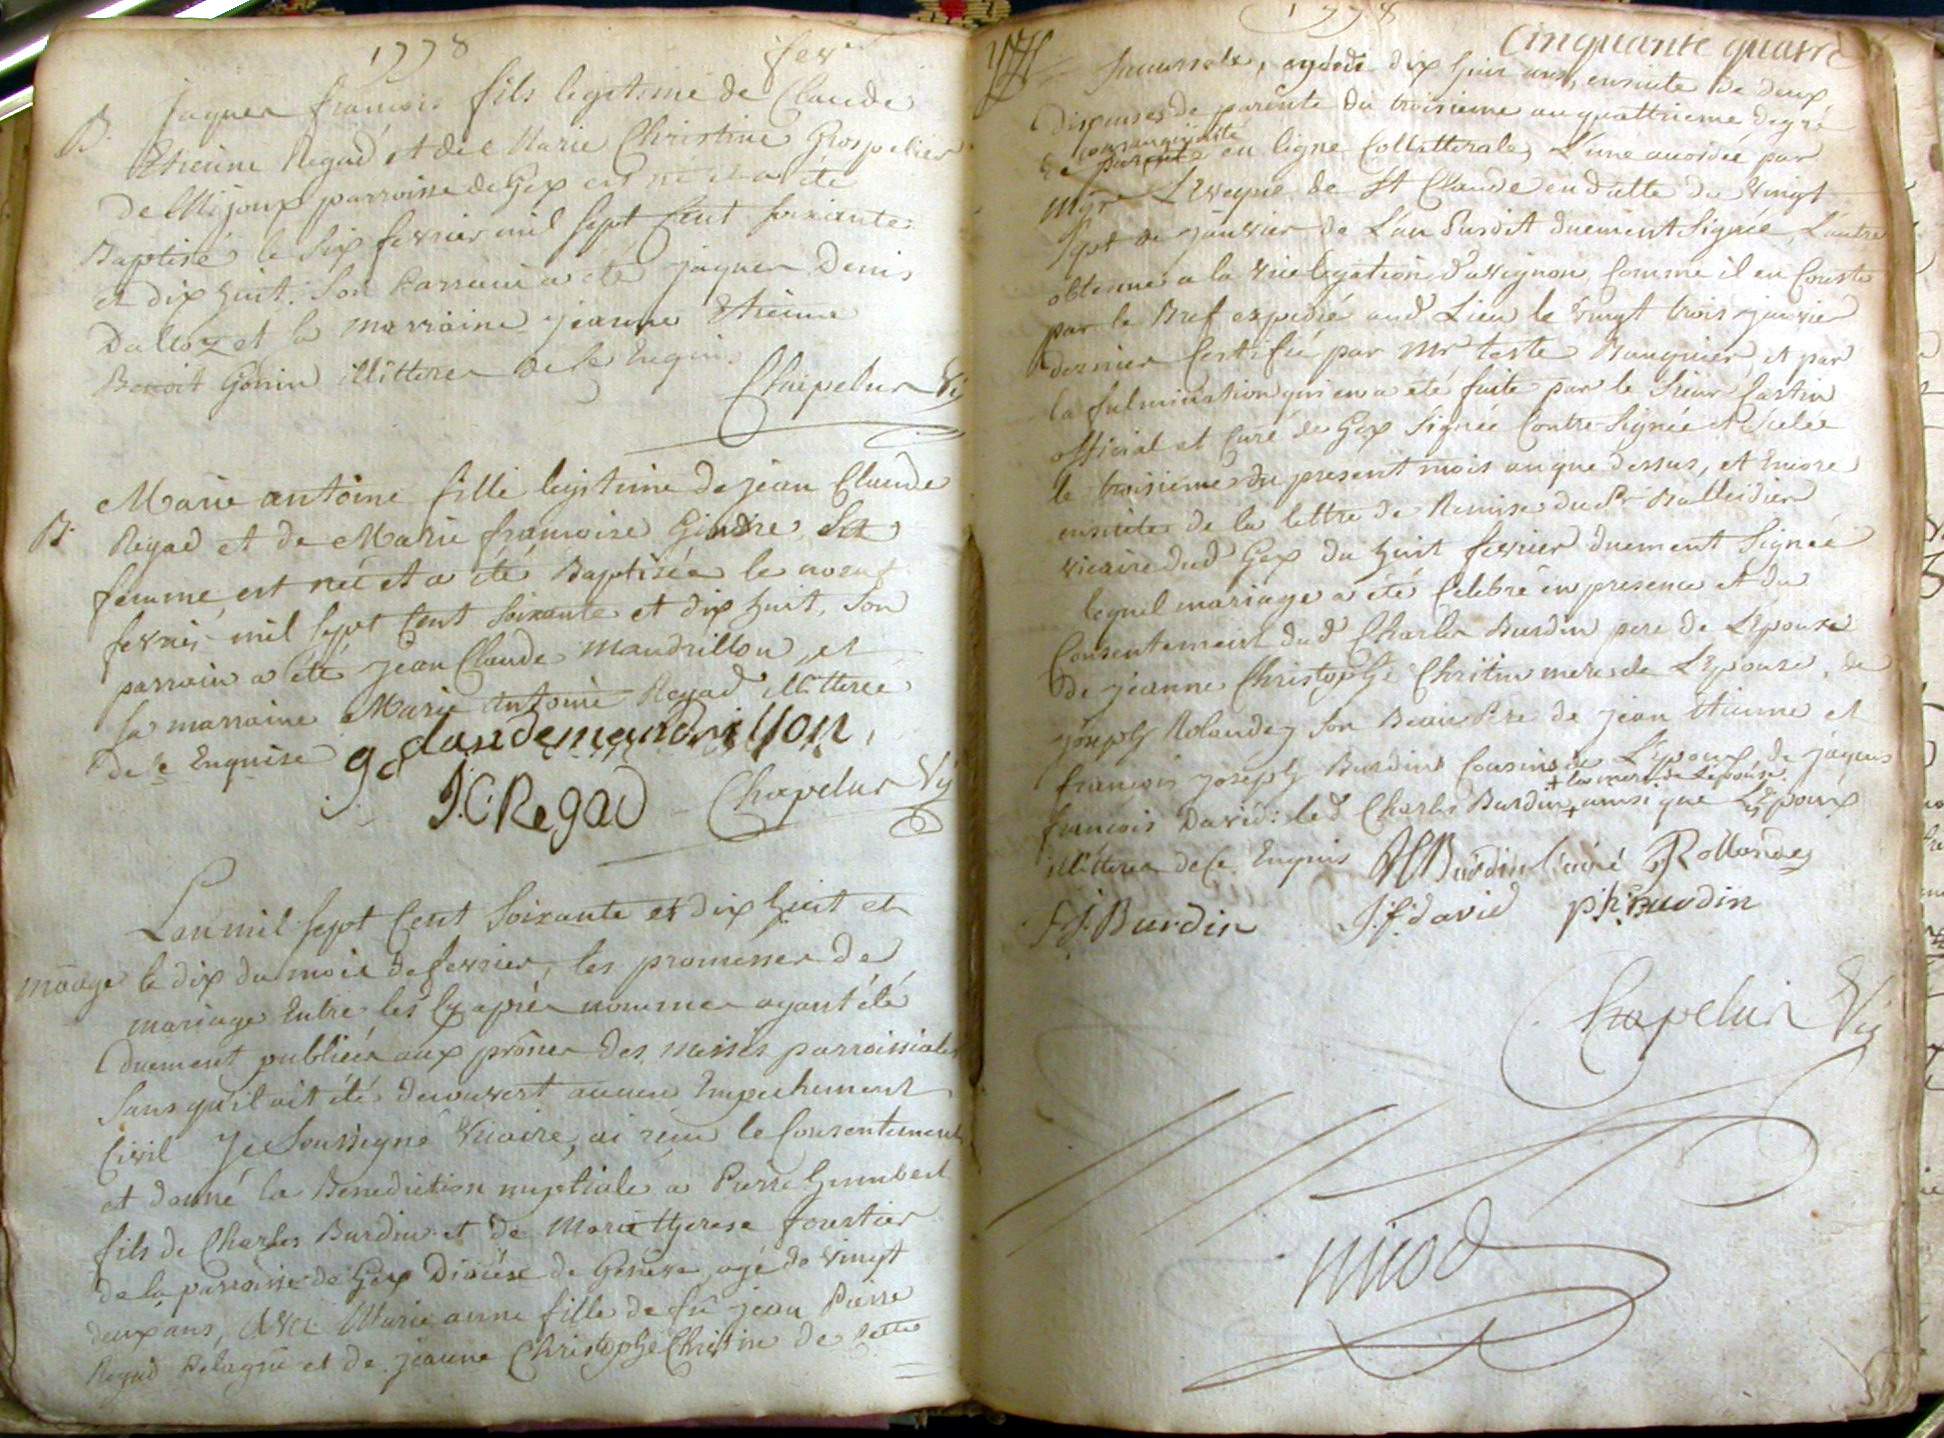 1778
fev
B. Jaques françois fils legitime de Claude
Etienne Regad et de Marie Christine Grospelier
de Mijoux parroisse de Gex est né et a été
Baptisé le six fevrier mil sept cent soixante
et dix huit. son Parrain a été jaques Denis
Dalloz et la marraine jeanne Etienne
Benoit Gonin illitteres de ce Enquis
Chapelur Vic
Marie antoine fille legitime de jean Claude
B. Regad et de Marie francoise Gindre sa
femme, est née et a été Baptisée le noeuf
fevrier mil sept cent soixante et dix huit, son
parrain a été jean Claude Mandrillon, et
sa marraine Marie Antoine Regad illitteree
de ce Enquise
g claude mandrillon
J.C. Regad Chapelur Vic
L'an mil sept cent soixante et dix huit et
mãage le dix du mois de fevrier, les promesses de
mariage Entre les cy après nommes ayant été
duement publiées aux prônes des messes parroissiales
sans qu'il ait été decouvert aucun Empechement
Civil Je soussigné vicaire, ai reçu le consentement
et donné la Benediction nuptiale a Pierre humbert
fils de Charles Burdin et de Marie therese fournier
de la parroisse de Gex Dioése de Geneve agé de vingt
deux ans, avec Marie anne fille de fû jean Pierre
Regad Pelagru et de jeanne Christophe Christin de cette
1778
Cinquante quatre
succursale, agée de dix huit ans, ensuite de deux
dispenses de parenté du troisieme au quattrieme degré
consanguinité
de parenté en ligne collatterale, L'une accordée par
Mgr L'Eveque de St Claude en datte du vingt
sept de janvier de L'an susdit duement signée, L'autre
obtenue a la vice legation d'avignon, comme il en conste
par le Bref expedié aud Lieu le vingt trois janvier
dernier certifié par Mr teste Banquier, et par
la fulmination qui en a été faite par le sieur Castin
official et curé de Gex signée contre signée et scelée
le troisieme du present mois an que dessus, et Encore
ensuite de la lettre de Remise du Sr Balleidier
vicaire dud Gex du huit fevrier duement signée
lequel mariage a été celebré en presence et du
Consentement dud Charles Burdin pere de L'epoux
de jeanne Christophe Christin mere de L'epouse, de
joseph Rolandez son Beau Pere de jean Etienne et
françois joseph Burdin Cousins de L'epoux, de jaques
+ la mere de L'epouse
francois David: led Charles Burdin + ainsi que L'Epoux
illitteres de ce Enquis JE Burdin l'ainé J Rollandez
F J. Burdin J. f. david ph Burdin
Chapelur Vic
Nicod